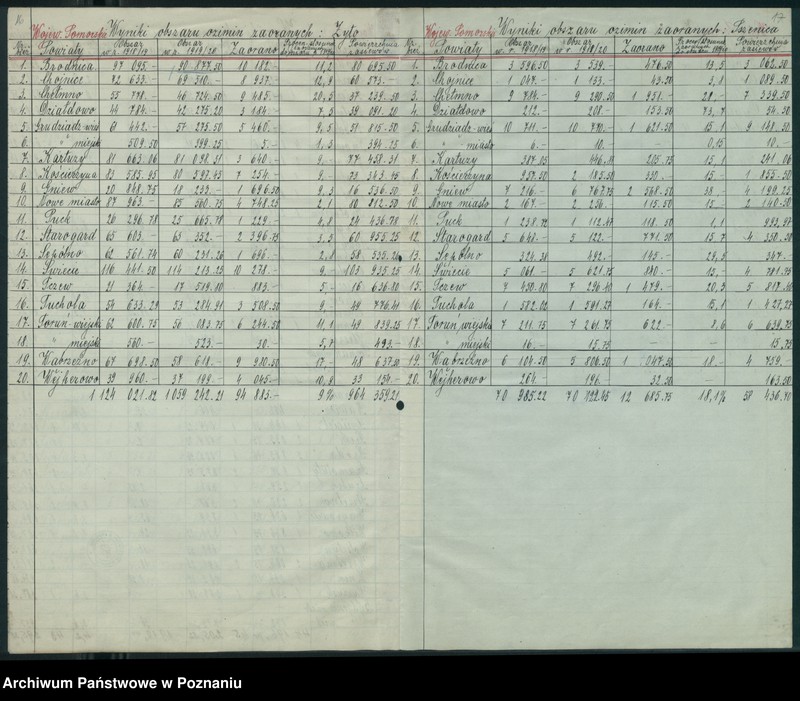 16
17
Wojew. Pomorski Wyniki obszaru ozimin zaoranych: Żyto
Powiaty Obszar w r. 1918/19 Obszar w r. 1919/20 Zaorano Powierzchnia zasiewów
1. Brodnica 97 095.- 90 877.50 10 182.- 11,2 80 695.50
2. Chojnice 72 633.- 69 510.- 8 937.- 12,9 60 573.-
3. Chełmno 53 778.- 46 724.50 9 485.- 20,5 37 239.50
4. Działdowo 44 784.- 42 275.20 3 184.- 7,5 39 091.20
5. Grudziądz wieś 61 442.- 57 275.50 5 460.- 9,5 51 815.50
6. " miejsk 509.50 399.25 5.- 1,3 394.25
7. Kartuzy 81 663.06 81 098.31 3 640.- 9.- 77 458.31
8. Kościerzyna 83 585.95 80 597.45 7 254.- 9.- 73 343.45
9. Gniew 20 848.75 18 232.- 1 696.50 9,3 16 536.50
10. Nowe miasto 87 963.- 85 560.75 4 748.25 2,1 80 812.50
11. Puck 26 296.78 25 665.78 1 229.- 4,8 24 436.78
12. Starogard 65 603.- 63 352.- 2 396.75 3,5 60 955.25
13. Sępolno 62 561.74 60 231.26 1 696.- 2,8 58 535.26
14. Świecie 116 441.50 114 213.25 10 278.- 9.- 103 935.25
15. Tczew 21 364.- 17 519.80 883.- 5.- 16 636.80
16. Tuchola 54 633.29 53 284.91 3 508.50 9.- 49 776.41
17. Toruń wiejski 62 608.75 56 083.75 6 244.50 11,1 49 839.25
18. " miejsk 560.- 523.- 30.- 5,7 493.-
19. Wąbrzeźno 67 698.50 58 618.- 9 980.50 17.- 48 637.50
20. Wejherowo 39 960.- 37 199.- 4 045.- 10,8 33 154.-
1 124 021.82 1 059 242.21 94 883.- 9% 964 359.21
Wojew. Pomorski Wyniki obszaru ozimin zaoranych: Pszenica
Powiaty Obszar w r. 1918/19 Obszar w r. 1919/20 Zaorano Powierzchnia zasiewów
1. Brodnica 3 596.50 3 539.- 476.50 13,5 3 062.50
2. Chojnice 1 047.- 1 133.- 43.50 3,8 1 089.50
3. Chełmno 9 784.- 9 290.50 1 951.- 21.- 7 339.50
4. Działdowo 212.- 208.- 153.50 73,7 54.50
5. Grudziądz wieś 10 711.- 10 770.- 1 621.50 15,1 9 148.50
6. " miasto 6.- 10.- - 0.15 10.-
7. Kartuzy 387.05 446.81 205.75 15,1 241.06
8. Kościerzyna 957.50 2 185.50 330.- 15.- 1 855.50
9. Gniew 7 216.- 6 767.75 2 568.50 38.- 4 199.25
10. Nowe miasto 2 167.- 2 256.- 115.50 12.- 2 140.50
11. Puck 1 238.72 1 112.47 118.50 1,1 993.97
12. Starogard 5 648.- 5 122.- 771.50 15,7 4 350.50
13. Sępolno 324.38 492.- 145.- 29,5 347.-
14. Świecie 5 061.- 5 621.75 840.- 15.- 4 781.75
15. Tczew 7 450.80 7 296.40 1 479.- 20,3 5 817.40
16. Tuchola 1 582.02 1 591.27 164.- 15,1 1 427.27
17. Toruń wiejska 7 211.75 7 261.75 622.- 8,6 6 639.75
18. " miejsk 16.- 15.75 - - 15.75
19. Wąbrzeźno 6 104.50 5 806.50 1 047.50 18.- 4 759.-
20. Wejherowo 264.- 196.- 32.50 - 163.50
70 985.22 70 722.45 12 685.75 18,1% 58 436.70
Archiwum Państwowe w Poznaniu